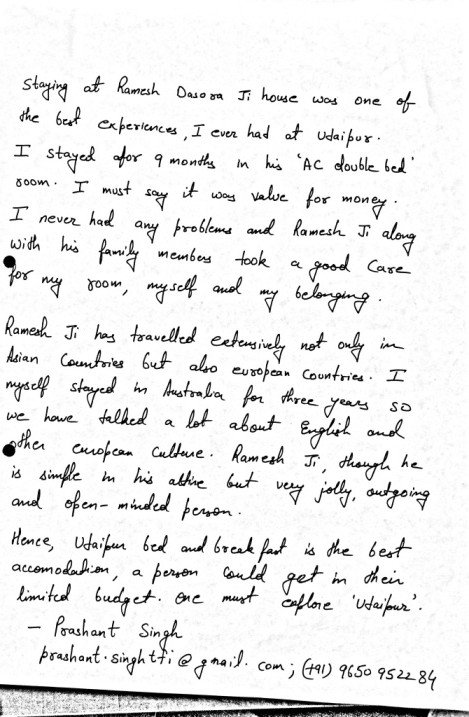 Staying at Ramesh Dasora Ji house was one of
the best experiences, I ever had at Udaipur.
I stayed afor 9 months in his 'AC double bed'
room. I must say it was value for money.
I never had any problems and Ramesh Ji along
with his family members took a good care
for my room, myself and my belonging.
Ramesh Ji has travelled extensively not only in
Asian Countries but also european countries. I
myself stayed in Australia for three years so
we have talked a lot about English and
other european culture. Ramesh Ji, though he
is simple in his attire but very jolly, outgoing
and open-minded person.
Hence, Udaipur bed and breakfast is the best
accomodation, a person could get in their
limited budget. One must explore 'Udaipur'.
- Prashant Singh
prashant.singhtfi@gmail.com; (+91) 9650 9522 84